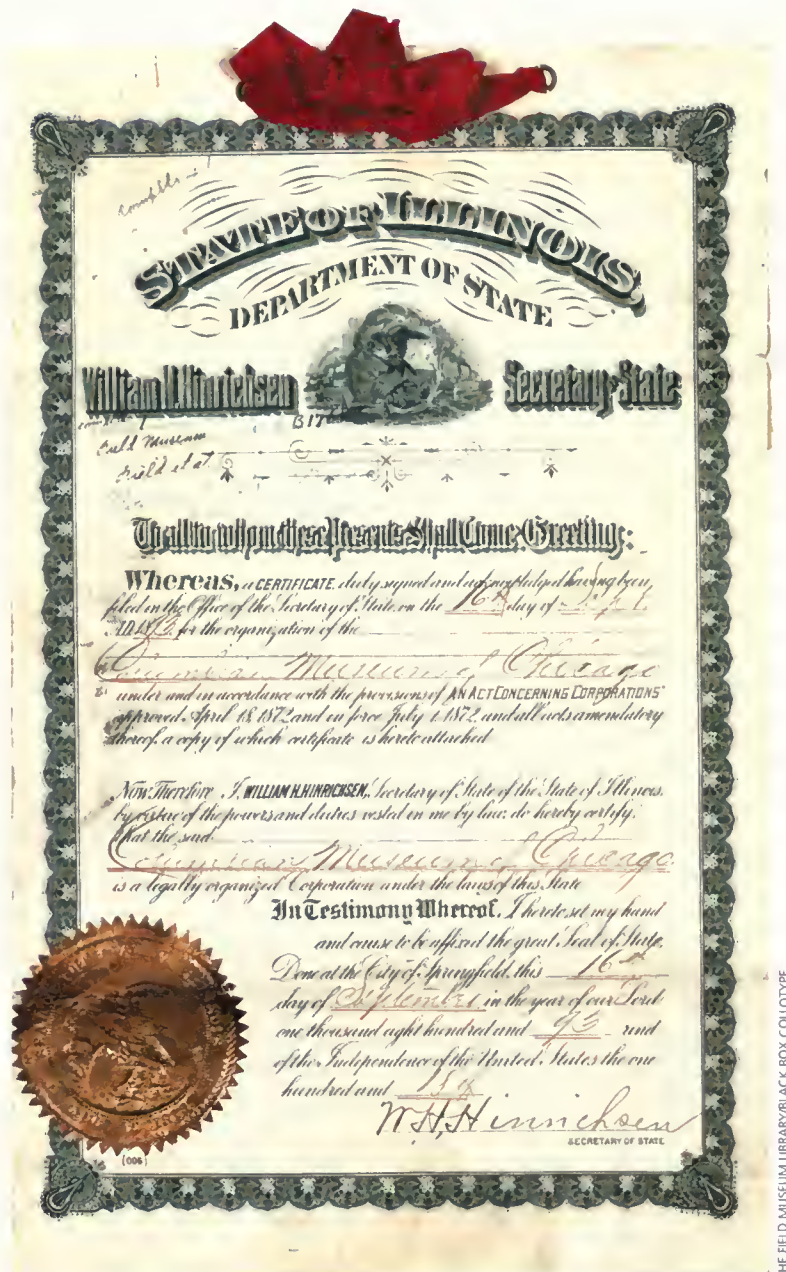 STATE OF ILLINOIS,
DEPARTMENT OF STATE
William H. Hinrichsen Secretary of State
Field Museum
Field et al
To all to whom these Presents Shall Come Greeting:
Whereas, a CERTIFICATE, duly signed and acknowledged having been
filed in the Office of the Secretary of State on the 16th day of Sept
A.D. 1893 for the organization of the
Columbian Museum of Chicago
under and in accordance with the provisions of "AN ACT CONCERNING CORPORATIONS"
approved April 18, 1872 and in force July 1, 1872, and all acts amendatory
thereof, a copy of which certificate is hereto attached
Now Therefore, I, WILLIAM H. HINRICHSEN, Secretary of State of the State of Illinois,
by virtue of the powers and duties vested in me by law, do hereby certify
that the said
Columbian Museum of Chicago
is a legally organized Corporation under the laws of this State
In Testimony Whereof, I hereto set my hand
and cause to be affixed the great Seal of State,
Done at the City of Springfield this 16th
day of September in the year of our Lord
one thousand eight hundred and 93 and
of the Independence of the United States the one
hundred and 18
W. H. Hinrichsen
SECRETARY OF STATE
(006)
HE FIELD MUSEUM LIBRARY/BLACK BOX COLLOTYPE